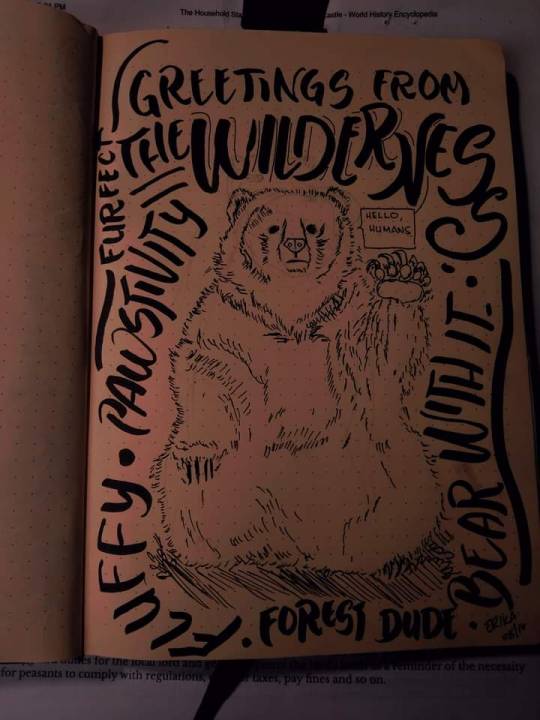 PM
The Household
castle - World History Encyclopedia
GREETINGS FROM
THE WILDERNESS
HELLO,
HUMANS
BEAR WITH IT.
FOREST DUDE
FLUFFY
PAWSTIVITY
FURFECT
ERIKA
for the local lord and
reminder of the necessity
for peasants to comply with regulations,
taxes, pay fines and so on.